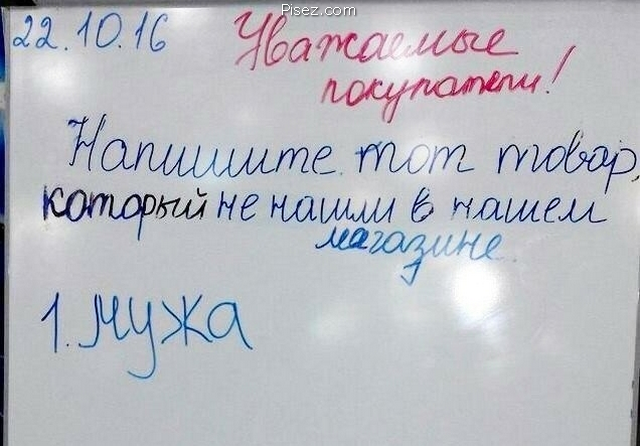 Pisez.com
22.10.16
Уважаемые
покупатели!
Напишите тот товар,
который не нашли в нашем
магазине.
1. Мужа